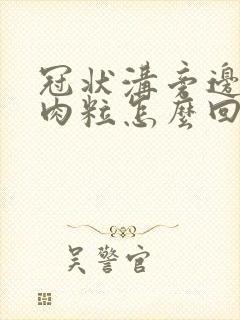 冠状溝旁邊
肉粒怎麼回
吴警官